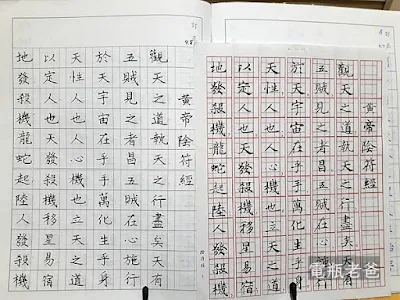 黃帝陰符經
觀天之道執天之行盡矣天有
五賊見之者昌五賊在心施行
於天宇宙在乎手萬化生乎身
天性人也人心機也立天之道
以定人也天發殺機移星易宿
地發殺機龍蛇起陸人發殺機
黃帝陰符經
觀天之道執天之行盡矣天有
五賊見之者昌五賊在心施行
於天宇宙在乎手萬化生乎身
天性人也人心機也立天之道
以定人也天發殺機移星易宿
地發殺機龍蛇起陸人發殺機
電瓶老爸